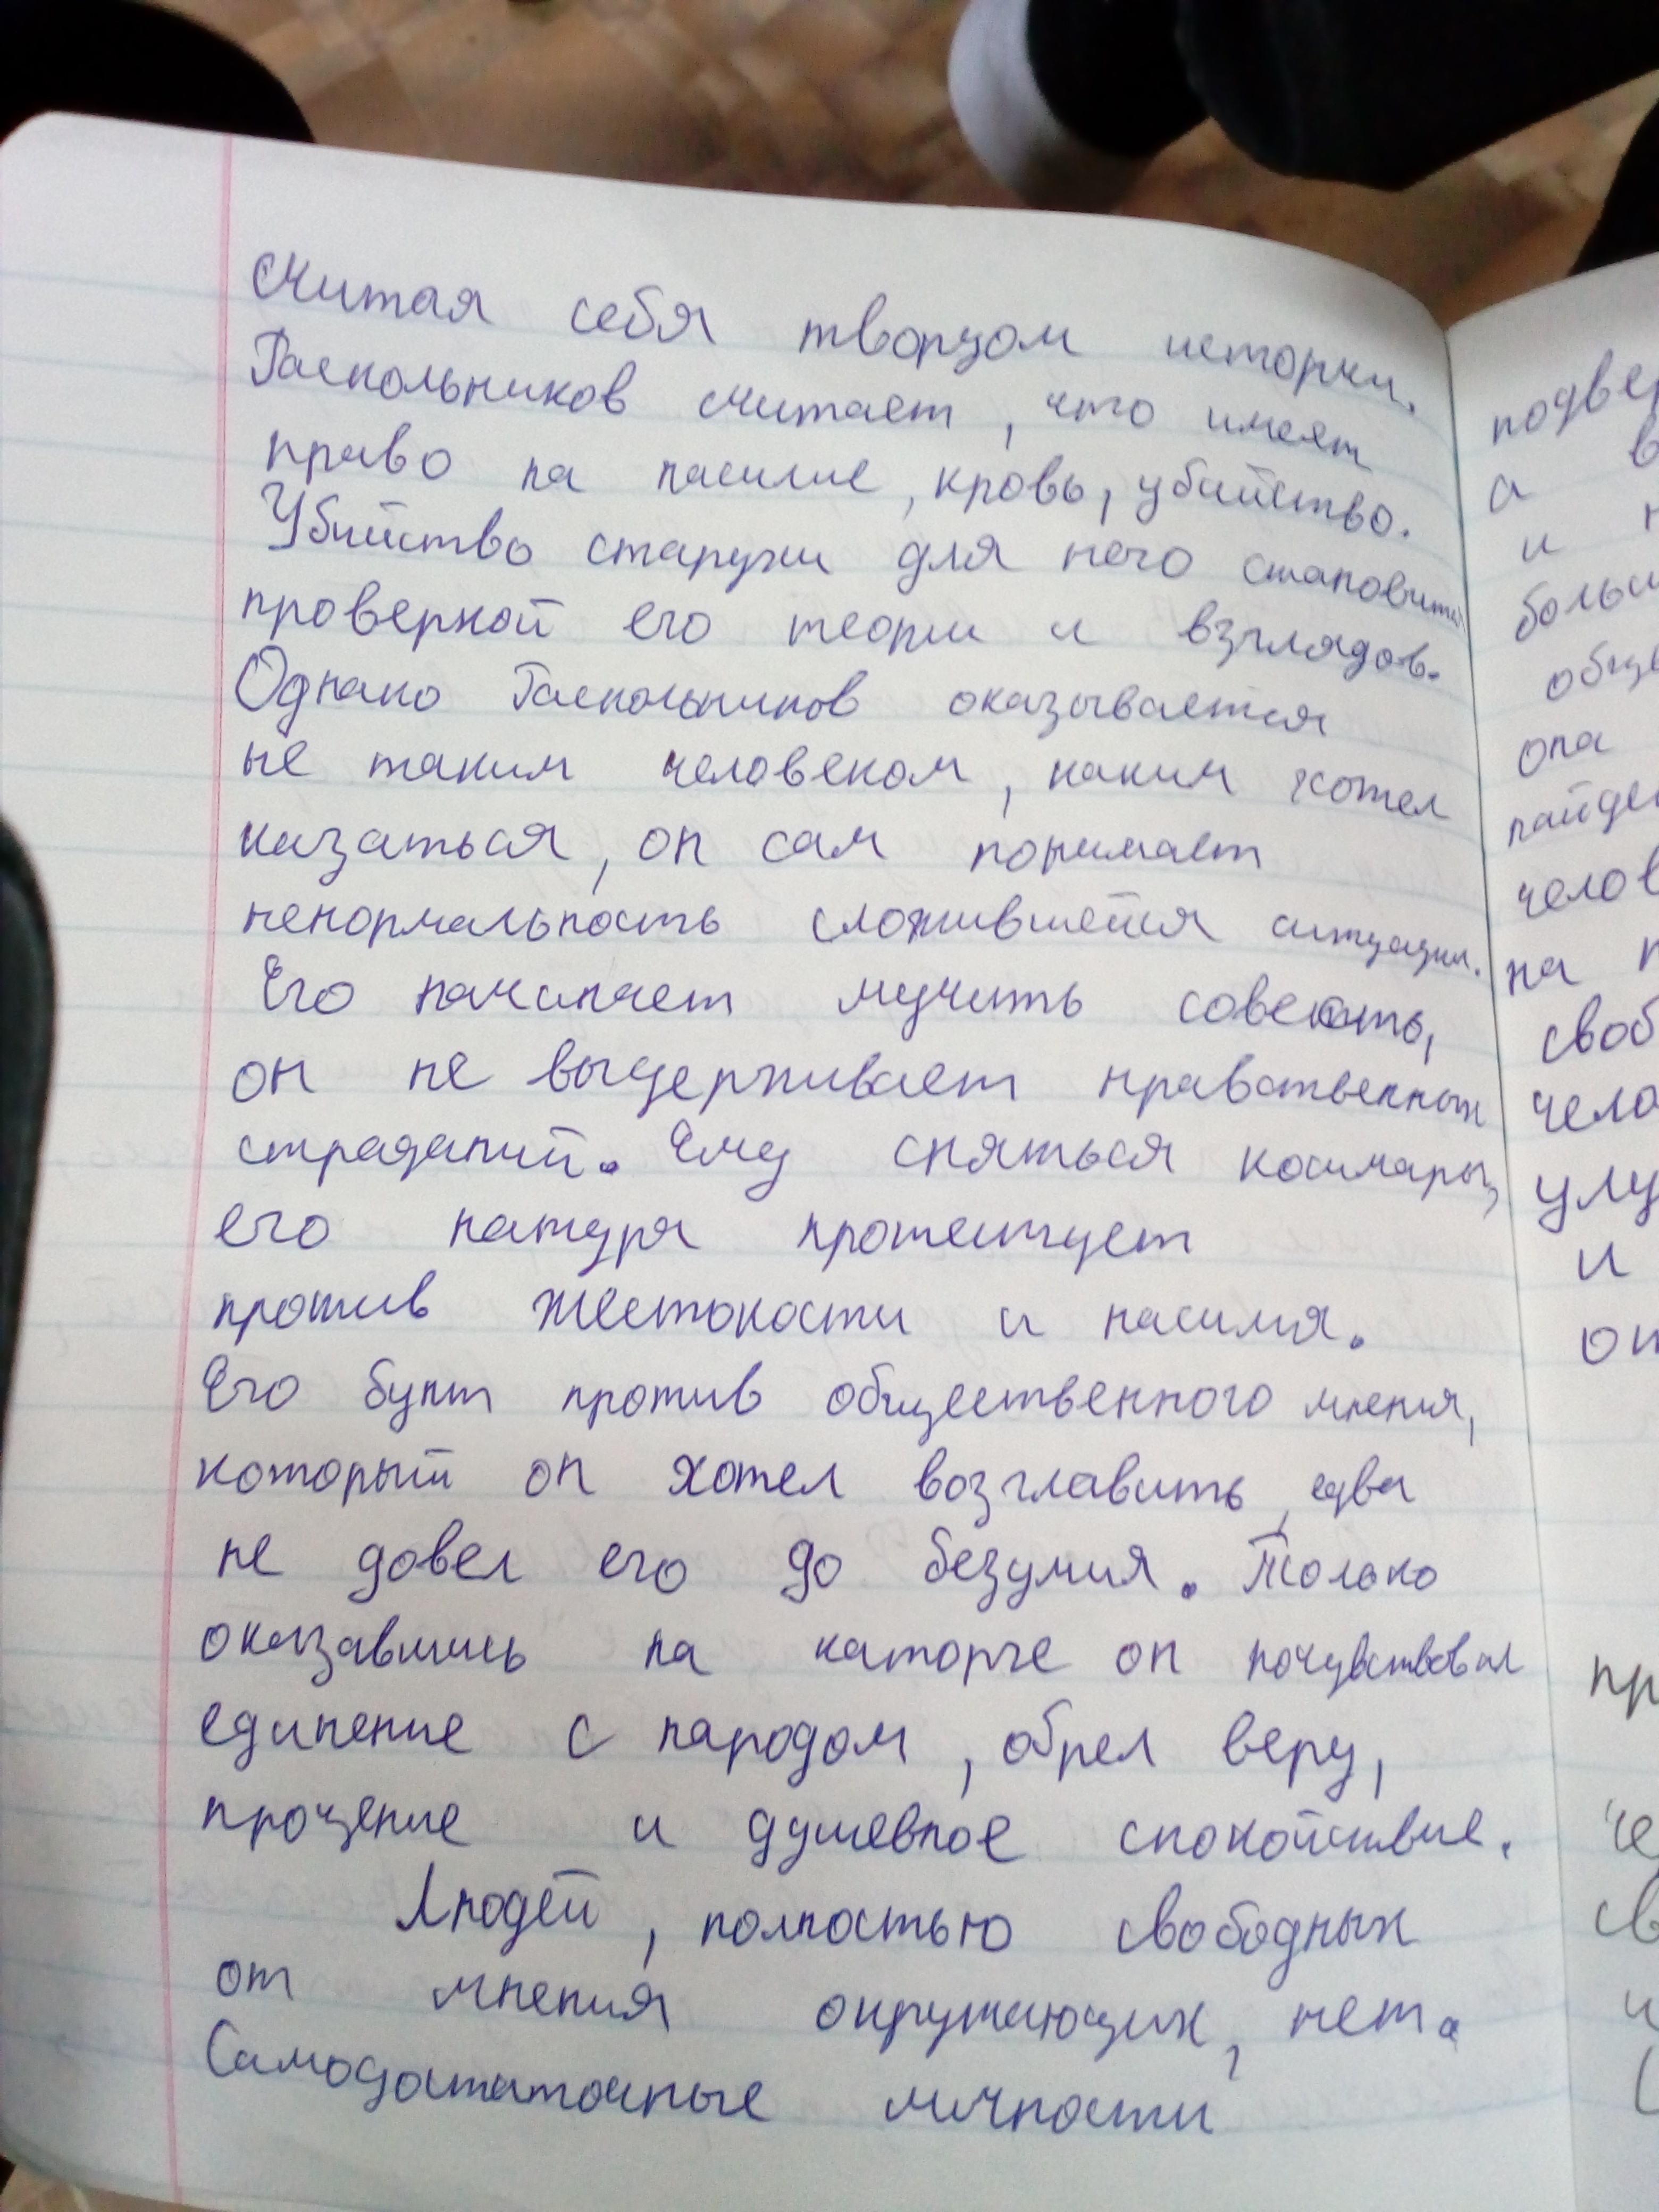 Считая себя творцом истории.
Раскольников считает, что имеет
право на насилие, кровь, убийство.
Убийство старухи для него становится
проверкой его теории и взглядов.
Однако Раскольников оказывается
не таким человеком, каким хотел
казаться, он сам понимает
ненормальность сложившейся ситуации.
Его начинает мучить совесть,
он не выдерживает нравственных
страданий. Ему сняться кошмары,
его натура протестует
против жестокости и насилия.
Его бунт против общественного мнения,
который он хотел возглавить, едва
не довел его до безумия. Только
оказавшись на каторге он почувствовал
единение с народом, обрел веру,
прощение и душевное спокойствие.
Людей, полностью свободных
от мнения окружающих, нет.
Самодостаточные личности
подвер
а в
и н
больш
обще
она
найде
челов
на п
своб
чело
улу
и
от
пр
че
св
и